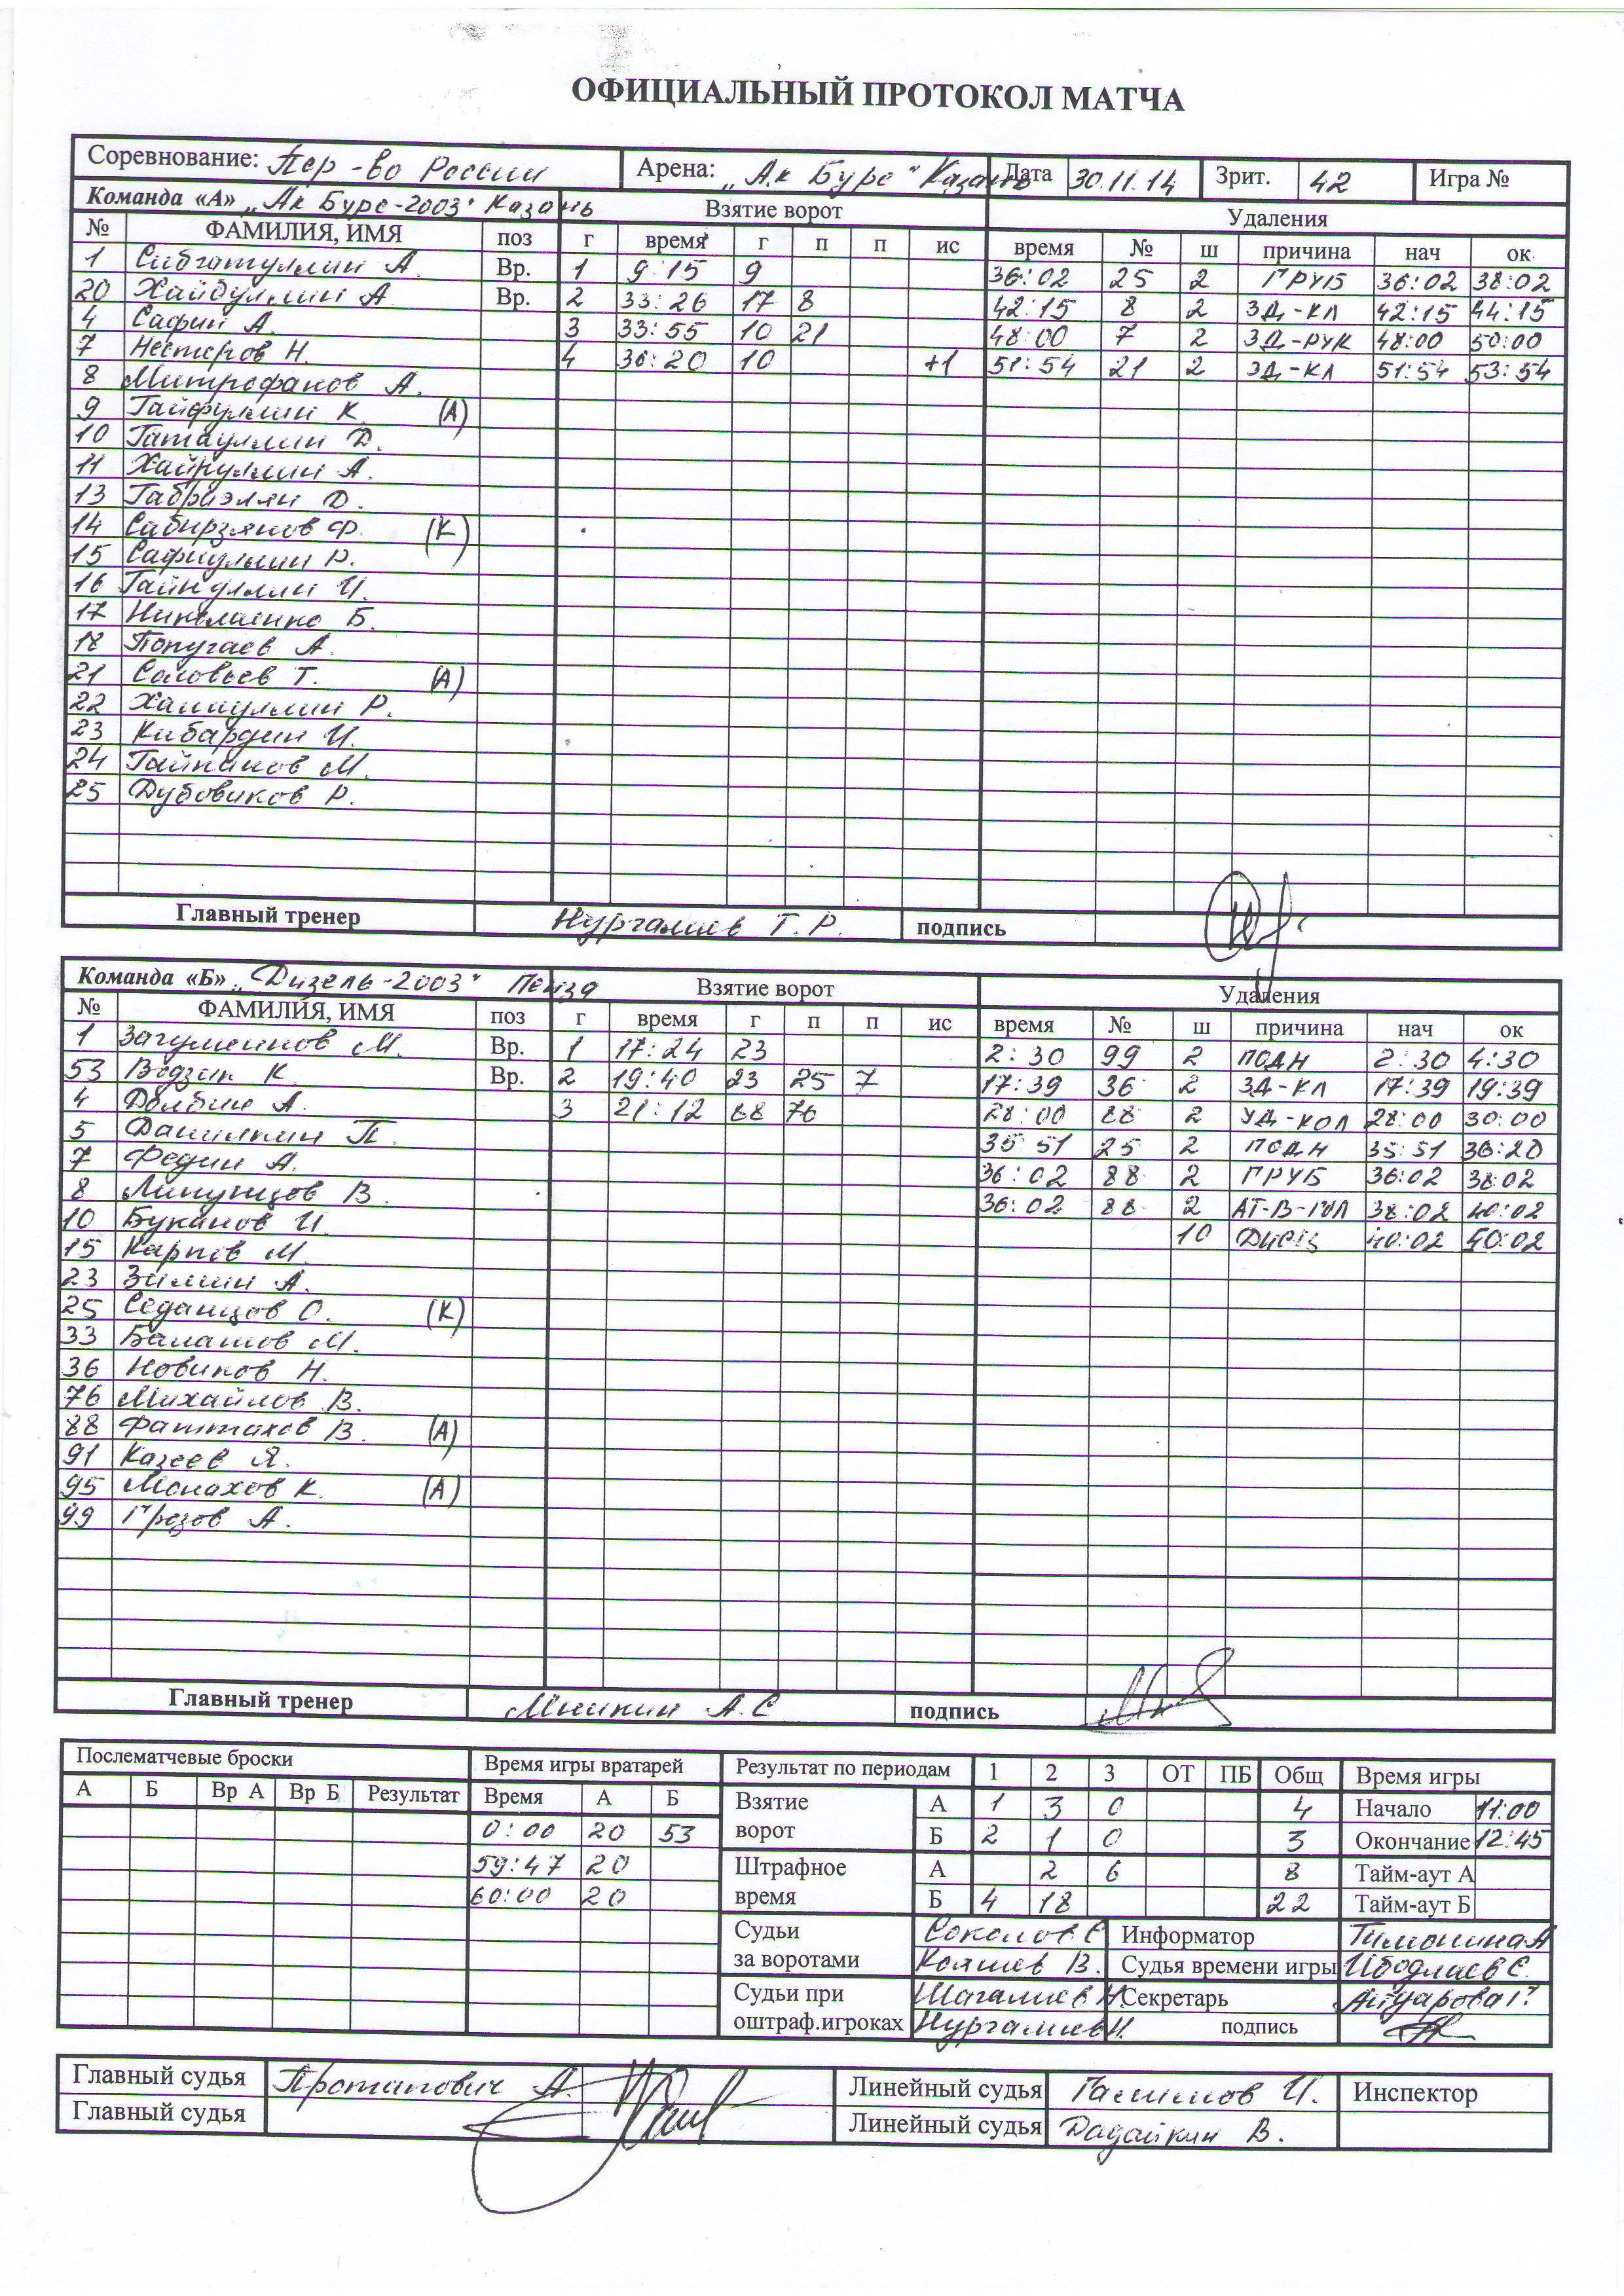 ОФИЦИАЛЬНЫЙ ПРОТОКОЛ МАТЧА
Соревнование: Пер-во России Арена: „Ак Барс" Казань Дата 30.11.14 Зрит. 42 Игра №
Команда «А» „Ак Барс-2003" Казань Взятие ворот Удаления
№ ФАМИЛИЯ, ИМЯ поз г время г п п ис время № ш причина нач ок
1 Сибгатуллин А. Вр. 1 9:15 9 36:02 25 2 ГРУБ 36:02 38:02
20 Хайбуллин А. Вр. 2 33:26 17 8 42:15 8 2 ЗД-КЛ 42:15 44:15
4 Сафин А. 3 33:55 10 21 48:00 7 2 ЗД-РУК 48:00 50:00
7 Нестеров Н. 4 36:20 10 +1 51:54 21 2 ЗД-КЛ 51:54 53:54
8 Митрофанов А.
9 Гайфуллин К. (А)
10 Гатауллин Д.
11 Хайруллин А.
13 Габриэлян Д.
14 Сабирзянов Ф. (К)
15 Сафиуллин Р.
16 Гайнуллин И.
17 Николаенко Б.
18 Попугаев А.
21 Соловьев Т. (А)
22 Р.
23 Кибардин И.
24 Гайнанов М.
25 Дубовиков Р.
Главный тренер Нургалиев Т.Р. подпись
Команда «Б» „Дизель-2003" Пенза Взятие ворот Удаления
№ ФАМИЛИЯ, ИМЯ поз г время г п п ис время № ш причина нач ок
1 Загуменнов М. Вр. 1 17:24 23 2:30 99 2 ПОДН 2:30 4:30
53 К. Вр. 2 19:40 23 25 7 17:39 36 2 ЗД-КЛ 17:39 19:39
4 Долбин А. 3 21:12 88 76 28:00 88 2 УД-КОЛ 28:00 30:00
5 Данилкин П. 35 51 25 2 ПОДН 35:51 36:20
7 Федин А. 36:02 88 2 ГРУБ 36:02 38:02
8 Липунцов В. 36:02 88 2 АТ-В-ГОЛ 38:02 40:02
10 Буканов И. 10 ДИСЦ 40:02 50:02
15 Карпов М.
23 Зимин А.
25 Седанцов О. (К)
33 Балашов М.
36 Новиков Н.
76 Михайлов В.
88 Фаттахов В. (А)
91 Казеев Я.
95 Монахов К. (А)
99 Грозов А.
Главный тренер Мишкин А.С подпись
Послематчевые броски Время игры вратарей Результат по периодам 1 2 3 ОТ ПБ Общ Время игры
А Б Вр А Вр Б Результат Время А Б Взятие ворот А 1 3 0 4 Начало 11:00
0:00 20 53 Б 2 1 0 3 Окончание 12:45
59:47 20 Штрафное время А 2 6 8 Тайм-аут А
60:00 20 Б 4 18 22 Тайм-аут Б
Судьи за воротами Соколов Е. Информатор Тимонина А
В. Судья времени игры Е.
Судьи при оштраф.игроках Шагалиев Н. Секретарь
Нургалиев И. подпись
Главный судья Протапович А. Линейный судья Галимов И. Инспектор
Главный судья Линейный судья Дадайкин В.